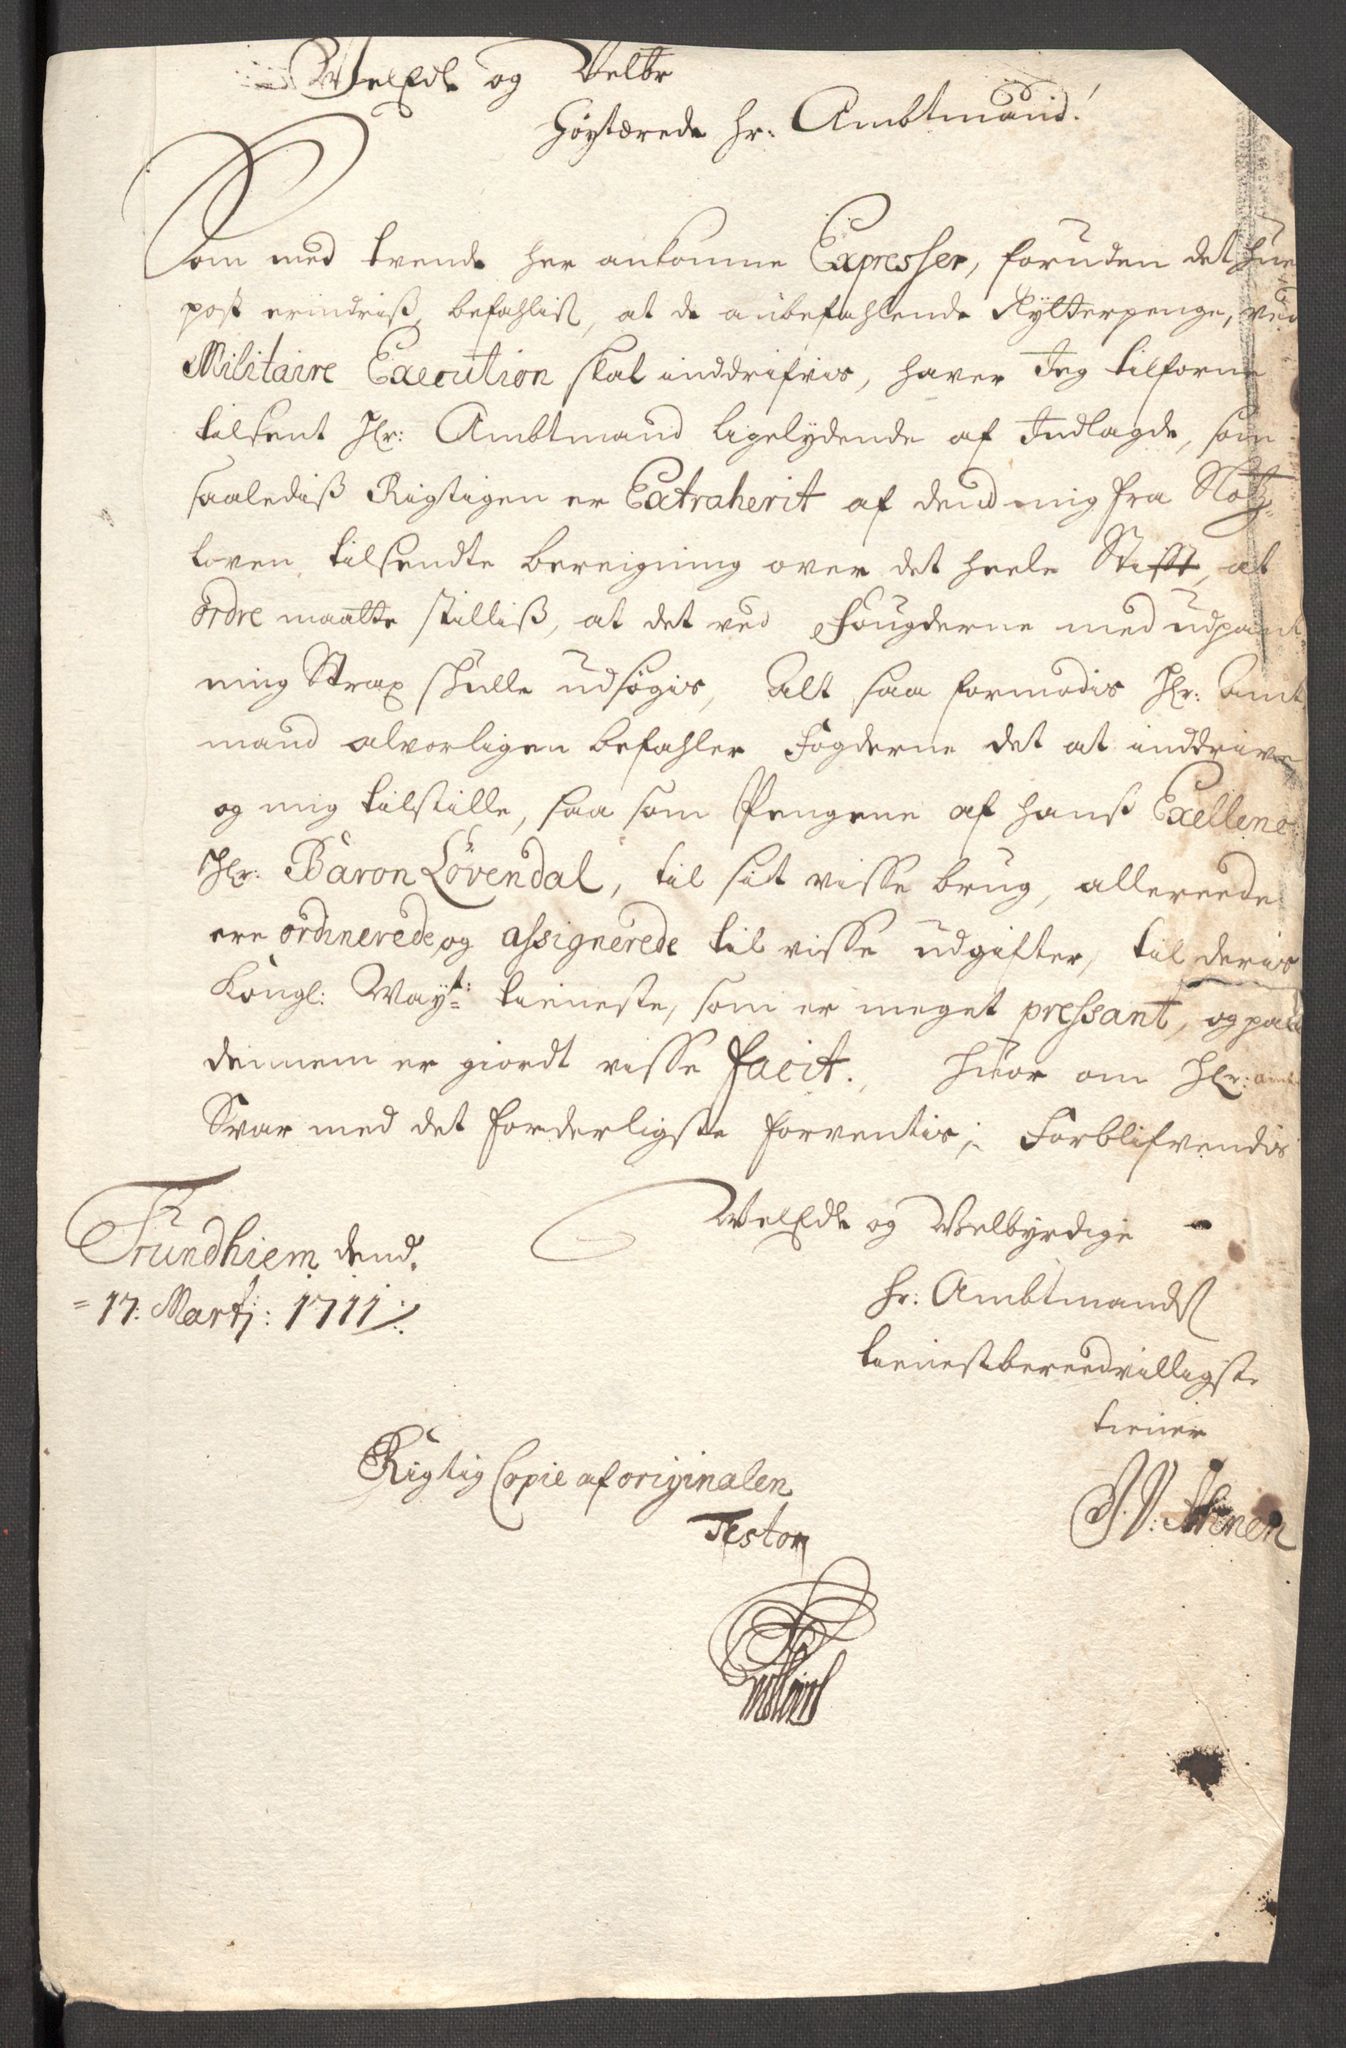 WelEdle og Velbr
Høytærede Hr: Ambtmand!
Som med tvende her ankomne Expresser, foruden det hver
post erindriß, befahlis, at de anbefahlende Rytterpenge, ved
Militaire Execution skal inddrifvis, haver Jeg tilforne
tilsent Hr: Ambtmand ligelydende af Indlagde, som
saalediß Rigtigen er Extraherit af dend mig fra Slotz-
loven tilsendte beregning over det heele Stifft, at
ordre maatte stilliß, at det ved Fougderne med udpant-
ning Strax skulle udsøgis, Alt saa formodis Hr: Amt-
mand alvorligen befahler Fogderne det at inddrive
og mig tilstille, saa som Pengene af hanß Exellence
Hr: Baron Løvendal, til sit visse brug, allereede
ere ordinerede og assignerede til visse udgifter, til deris
Kongl: May:t tieneste, som er meget pressant, og paa
dennem er giordt visse facit., Hvor om Hr: amt
Svar med det forderligste forventis; Forblifvendis
WelEdle og Velbyrdige
Trundhiem dend.
17: Martj: 1711
Hr: Ambtmands
tienestbereedvilligste
tiener
Rigtig Copie af originalen
Testor